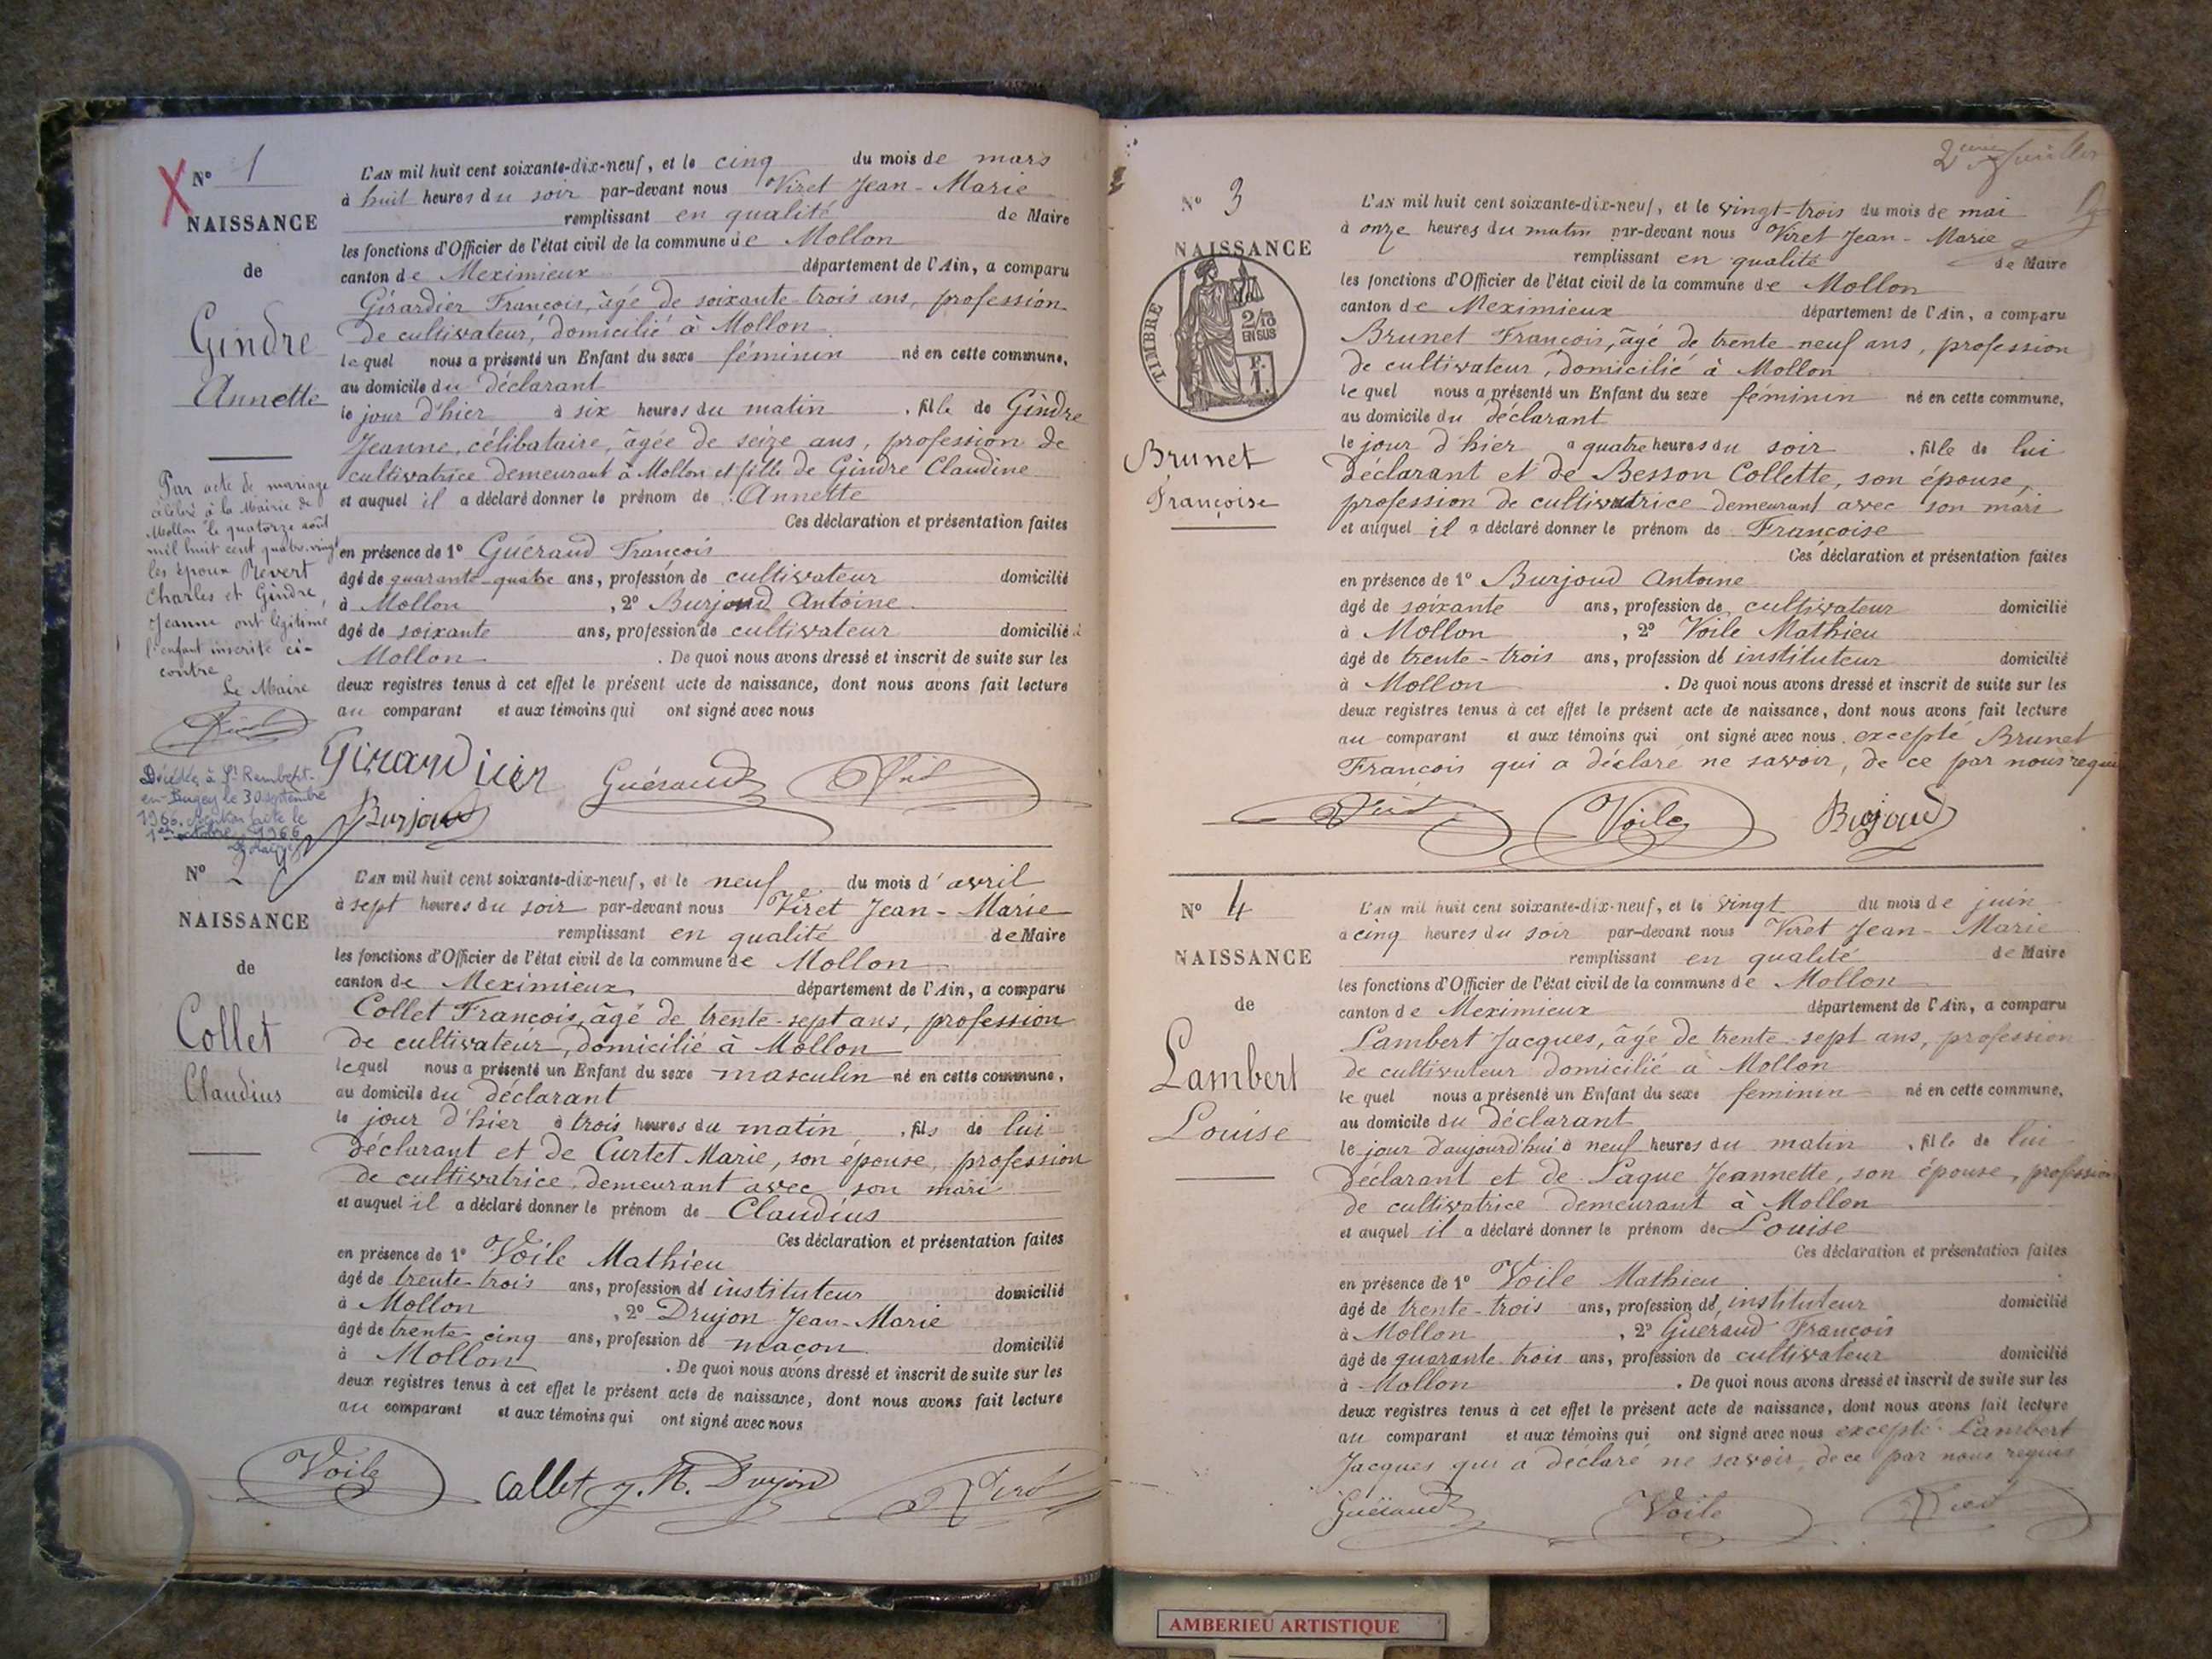 Nº 1
NAISSANCE
de
Gindre
Annette
L'AN mil huit cent soixante-dix-neuf, et le cinq du mois de mars
à huit heures du soir par-devant nous Viret Jean-Marie
remplissant en qualité de Maire
les fonctions d'Officier de l'état civil de la commune de Mollon
canton de Meximieux département de l'Ain, a comparu
Girardier François, âgé de soixante-trois ans, profession
de cultivateur, domicilié à Mollon
lequel nous a présenté un Enfant du sexe féminin né en cette commune,
au domicile du déclarant
le jour d'hier à six heures du matin, fille de Gindre
Jeanne, célibataire, âgée de seize ans, profession de
cultivatrice demeurant à Mollon et fille de Gindre Claudine
et auquel il a déclaré donner le prénom de Annette
Ces déclaration et présentation faites
en présence de 1º Guéraud François
âgé de quarante-quatre ans, profession de cultivateur domicilié
à Mollon, 2º Burjoud Antoine
âgé de soixante ans, profession de cultivateur domicilié à
Mollon. De quoi nous avons dressé et inscrit de suite sur les
deux registres tenus à cet effet le présent acte de naissance, dont nous avons fait lecture
au comparant et aux témoins qui ont signé avec nous
Par acte de mariage
célébré à la Mairie de
Mollon le quatorze août
mil huit cent quatre-vingt
les époux Revert
Charles et Gindre,
Jeanne ont légitimé
l'enfant inscrite ci-
contre
Le Maire
Viret
Décédée à St Rambert-
en-Bugey le 30 septembre
1966. Mention faite le
1er octobre 1966
Girardier Guéraud Viret
Burjoud
Nº 2
NAISSANCE
de
Collet
Claudius
L'AN mil huit cent soixante-dix-neuf, et le neuf du mois d'avril
à sept heures du soir par-devant nous Viret Jean-Marie
remplissant en qualité de Maire
les fonctions d'Officier de l'état civil de la commune de Mollon
canton de Meximieux département de l'Ain, a comparu
Collet François, âgé de trente-sept ans, profession
de cultivateur, domicilié à Mollon
lequel nous a présenté un Enfant du sexe masculin né en cette commune,
au domicile du déclarant
le jour d'hier à trois heures du matin, fils de lui
déclarant et de Curtet Marie, son épouse, profession
de cultivatrice, demeurant avec son mari
et auquel il a déclaré donner le prénom de Claudius
Ces déclaration et présentation faites
en présence de 1º Voile Mathieu
âgé de trente-trois ans, profession d'instituteur domicilié
à Mollon, 2º Drujon Jean-Marie
âgé de trente-cinq ans, profession de maçon domicilié
à Mollon. De quoi nous avons dressé et inscrit de suite sur les
deux registres tenus à cet effet le présent acte de naissance, dont nous avons fait lecture
au comparant et aux témoins qui ont signé avec nous
Voile Collet J. M. Drujon Viret
2ème feuillet
Nº 3
NAISSANCE
TIMBRE
2/10 EN SUS
F. 1.
Brunet
Françoise
L'AN mil huit cent soixante-dix-neuf, et le vingt-trois du mois de mai
à onze heures du matin par-devant nous Viret Jean-Marie
remplissant en qualité de Maire
les fonctions d'Officier de l'état civil de la commune de Mollon
canton de Meximieux département de l'Ain, a comparu
Brunet François, âgé de trente-neuf ans, profession
de cultivateur, domicilié à Mollon
lequel nous a présenté un Enfant du sexe féminin né en cette commune,
au domicile du déclarant
le jour d'hier à quatre heures du soir, fille de lui
déclarant et de Besson Collette, son épouse,
profession de cultivatrice demeurant avec son mari
et auquel il a déclaré donner le prénom de Françoise
Ces déclaration et présentation faites
en présence de 1º Burjoud Antoine
âgé de soixante ans, profession de cultivateur domicilié
à Mollon, 2º Voile Mathieu
âgé de trente-trois ans, profession d'instituteur domicilié
à Mollon. De quoi nous avons dressé et inscrit de suite sur les
deux registres tenus à cet effet le présent acte de naissance, dont nous avons fait lecture
au comparant et aux témoins qui ont signé avec nous. excepté Brunet
François qui a déclaré ne savoir, de ce par nous requis
Viret Voile Burjoud
Nº 4
NAISSANCE
de
Lambert
Louise
L'AN mil huit cent soixante-dix-neuf, et le vingt du mois de juin
à cinq heures du soir par-devant nous Viret Jean-Marie
remplissant en qualité de Maire
les fonctions d'Officier de l'état civil de la commune de Mollon
canton de Meximieux département de l'Ain, a comparu
Lambert Jacques, âgé de trente-sept ans, profession
de cultivateur domicilié à Mollon
lequel nous a présenté un Enfant du sexe féminin né en cette commune,
au domicile du déclarant
le jour d'aujourd'hui à neuf heures du matin, fille de lui
déclarant et de Laque Jeannette, son épouse, profession
de cultivatrice demeurant à Mollon
et auquel il a déclaré donner le prénom de Louise
Ces déclaration et présentation faites
en présence de 1º Voile Mathieu
âgé de trente-trois ans, profession d'instituteur domicilié
à Mollon, 2º Guéraud François
âgé de quarante-trois ans, profession de cultivateur domicilié
à Mollon. De quoi nous avons dressé et inscrit de suite sur les
deux registres tenus à cet effet le présent acte de naissance, dont nous avons fait lecture
au comparant et aux témoins qui ont signé avec nous excepté Lambert
Jacques qui a déclaré ne savoir, de ce par nous requis
Guéraud Voile Viret
AMBERIEU ARTISTIQUE